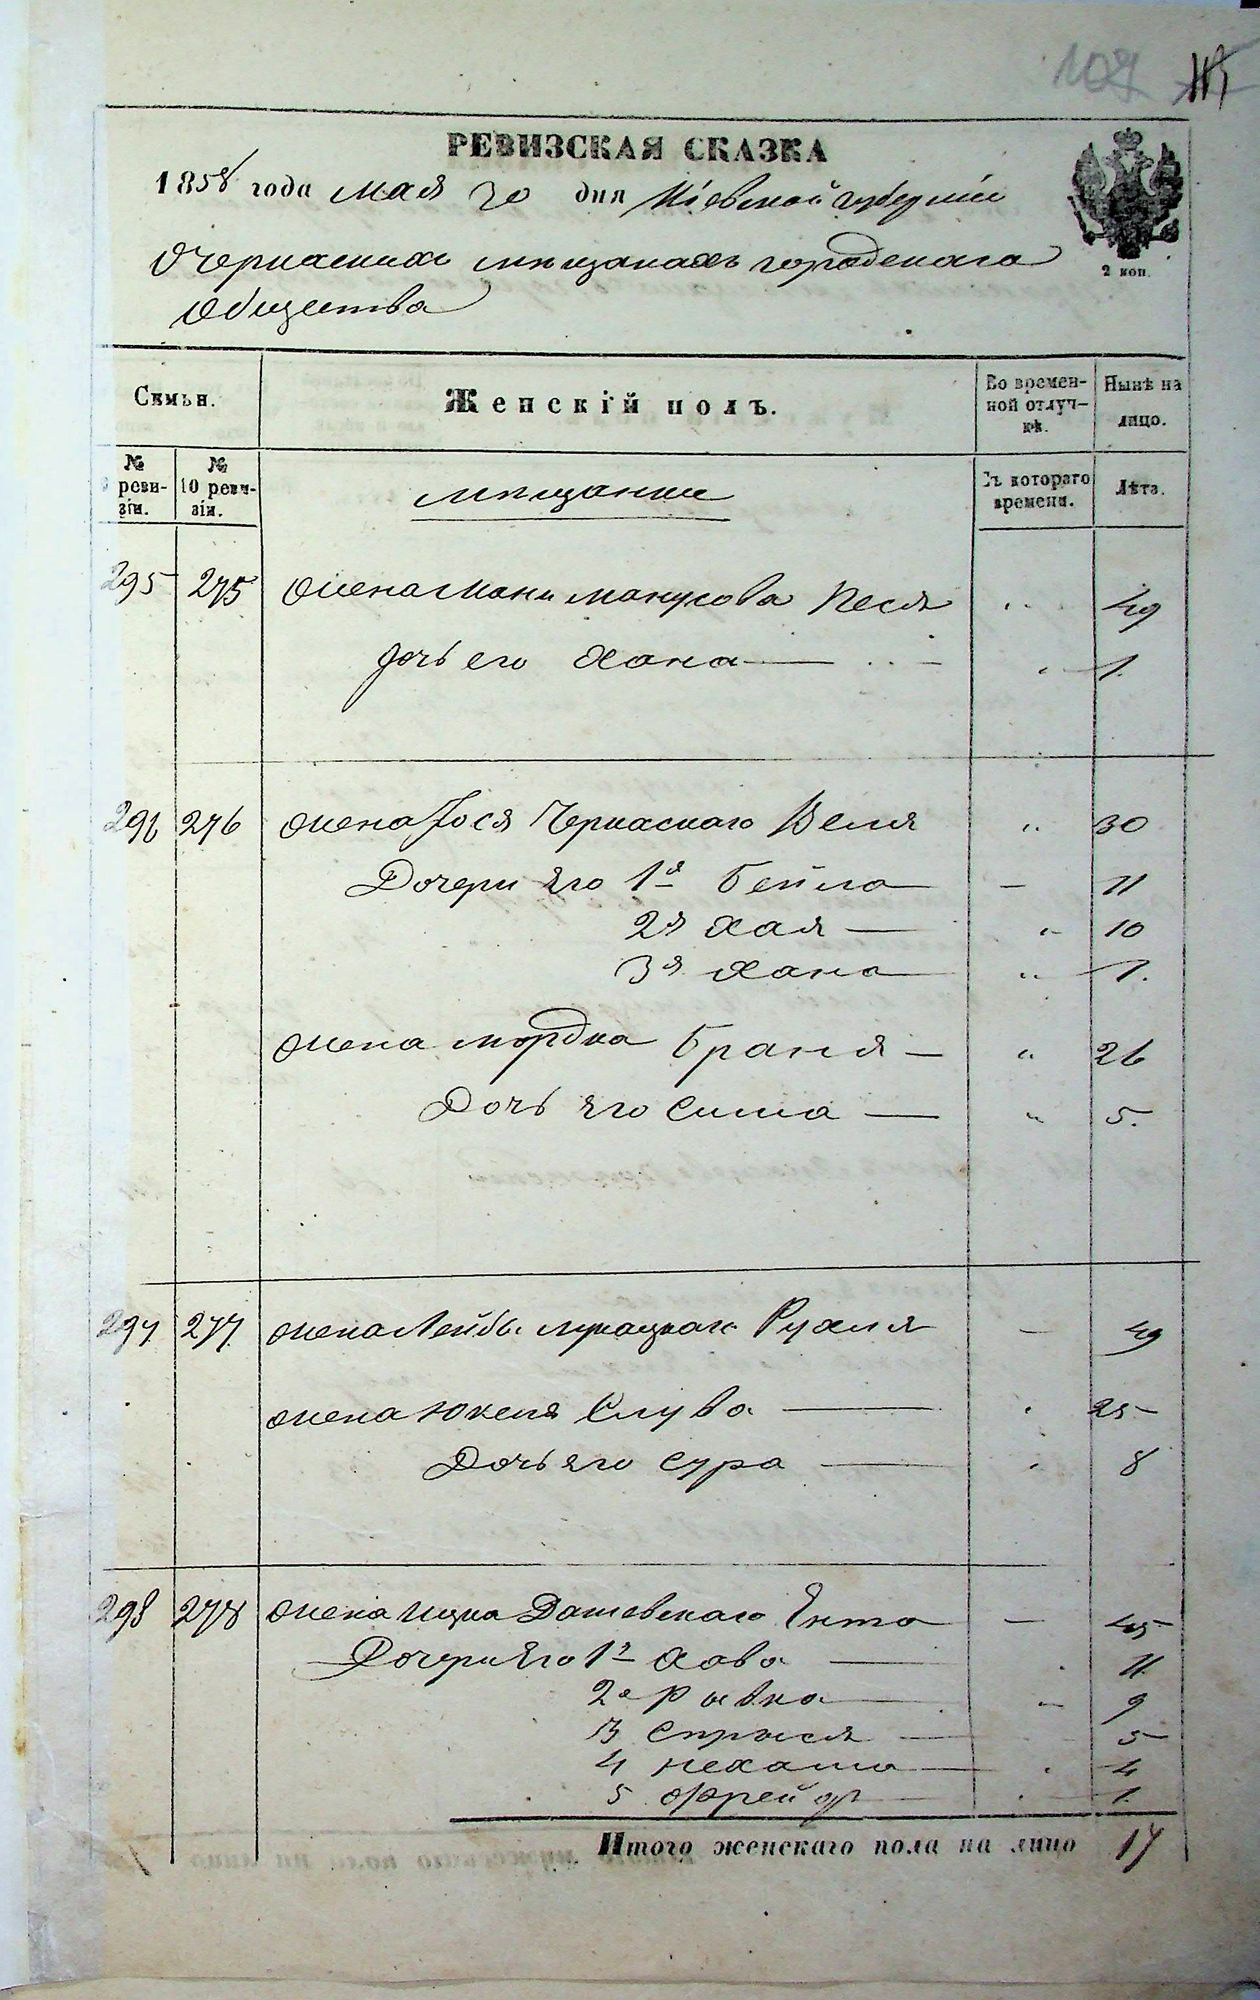 107
РЕВИЗСКАЯ СКАЗКА
1858 года мая 30 дня Кіевской губерніи
О Черкаскихъ мещанахъ городскаго
общества
2 коп.
Семьи. Женскій полъ. Во времен- Нынѣ на
ной отлуч- лицо.
кѣ.
№ № мещанки Съ котораго Лѣта.
9 реви- 10 реви- времени.
зіи. зіи.
295 275 Жена Мани Манусова Песя " 49
дочь его Хана — " 1.
296 276 жена Іося Черкаскаго Веля " 30
Дочери его 1я Бейла — 11
2я Хая — " 10
3я Хана " 1.
жена Мордка Браня — " 26
Дочь его Сима — " 5.
297 277 жена Лейбы Рухля — 49
жена Юкеля Слува — 25
Дочь его Сура — 8
298 278 жена Ицка Дашевскаго Ента — 45
Дочери его 1я Хова — 11
2я Рывка — " 9
3 Спрыся — 5
4 Нехама — 4
5 Фрейда — 1.
Итого женскаго пола на лицо 17